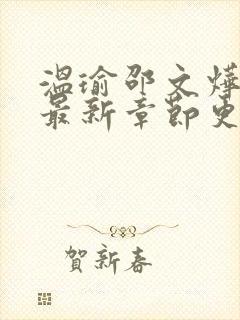 温瑜邵文烨
最新章节更
贺新春